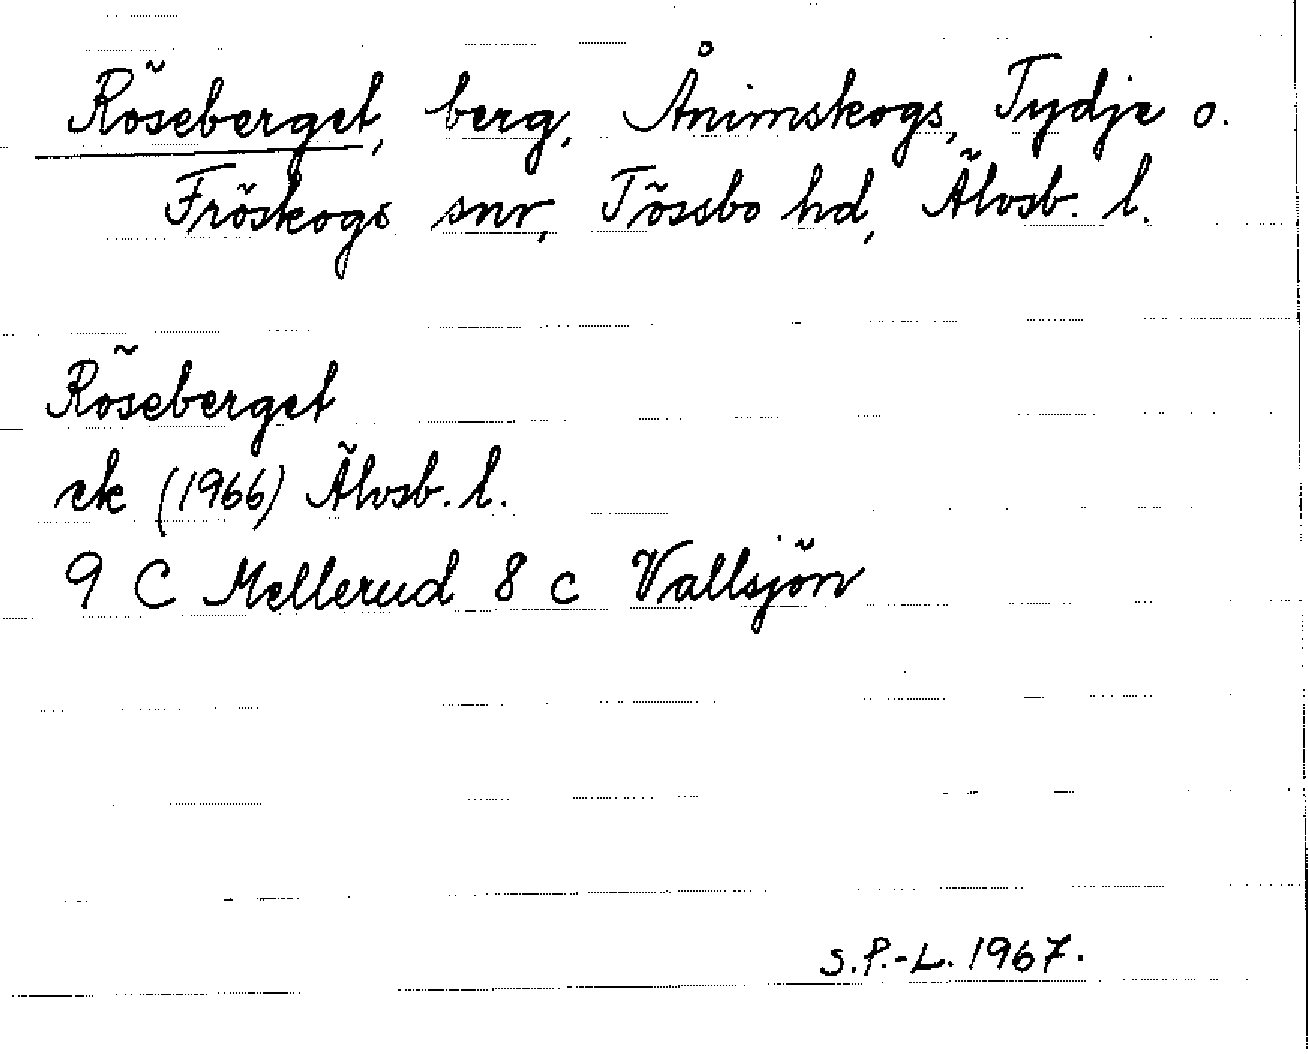 Röseberget, berg, Ånimskogs, Tydje o.
Fröskogs snr, Tössbo hd, Älvsb. l.
Röseberget
ek (1966) Älvsb. l.
9 C Mellerud 8 c Vallsjön
S.P.-L. 1967.